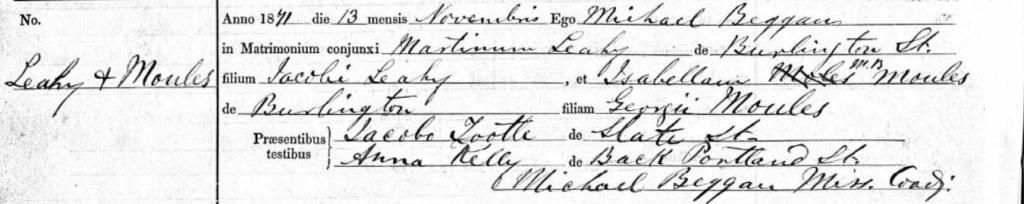 No.
Anno 1871 die 13 mensis Novembris Ego Michael Beggan
in Matrimonium conjunxi Martinum Leahy de Burlington St.
Leahy & Moules
filium Jacobi Leahy, et Isabellam Moles M.B Moules
de Burlington filiam Georgii Moules
Præsentibus testibus
Jacobo Tootle de Slate St.
Anna Kelly de Back Portland St.
Michael Beggan Miss. Coadj: